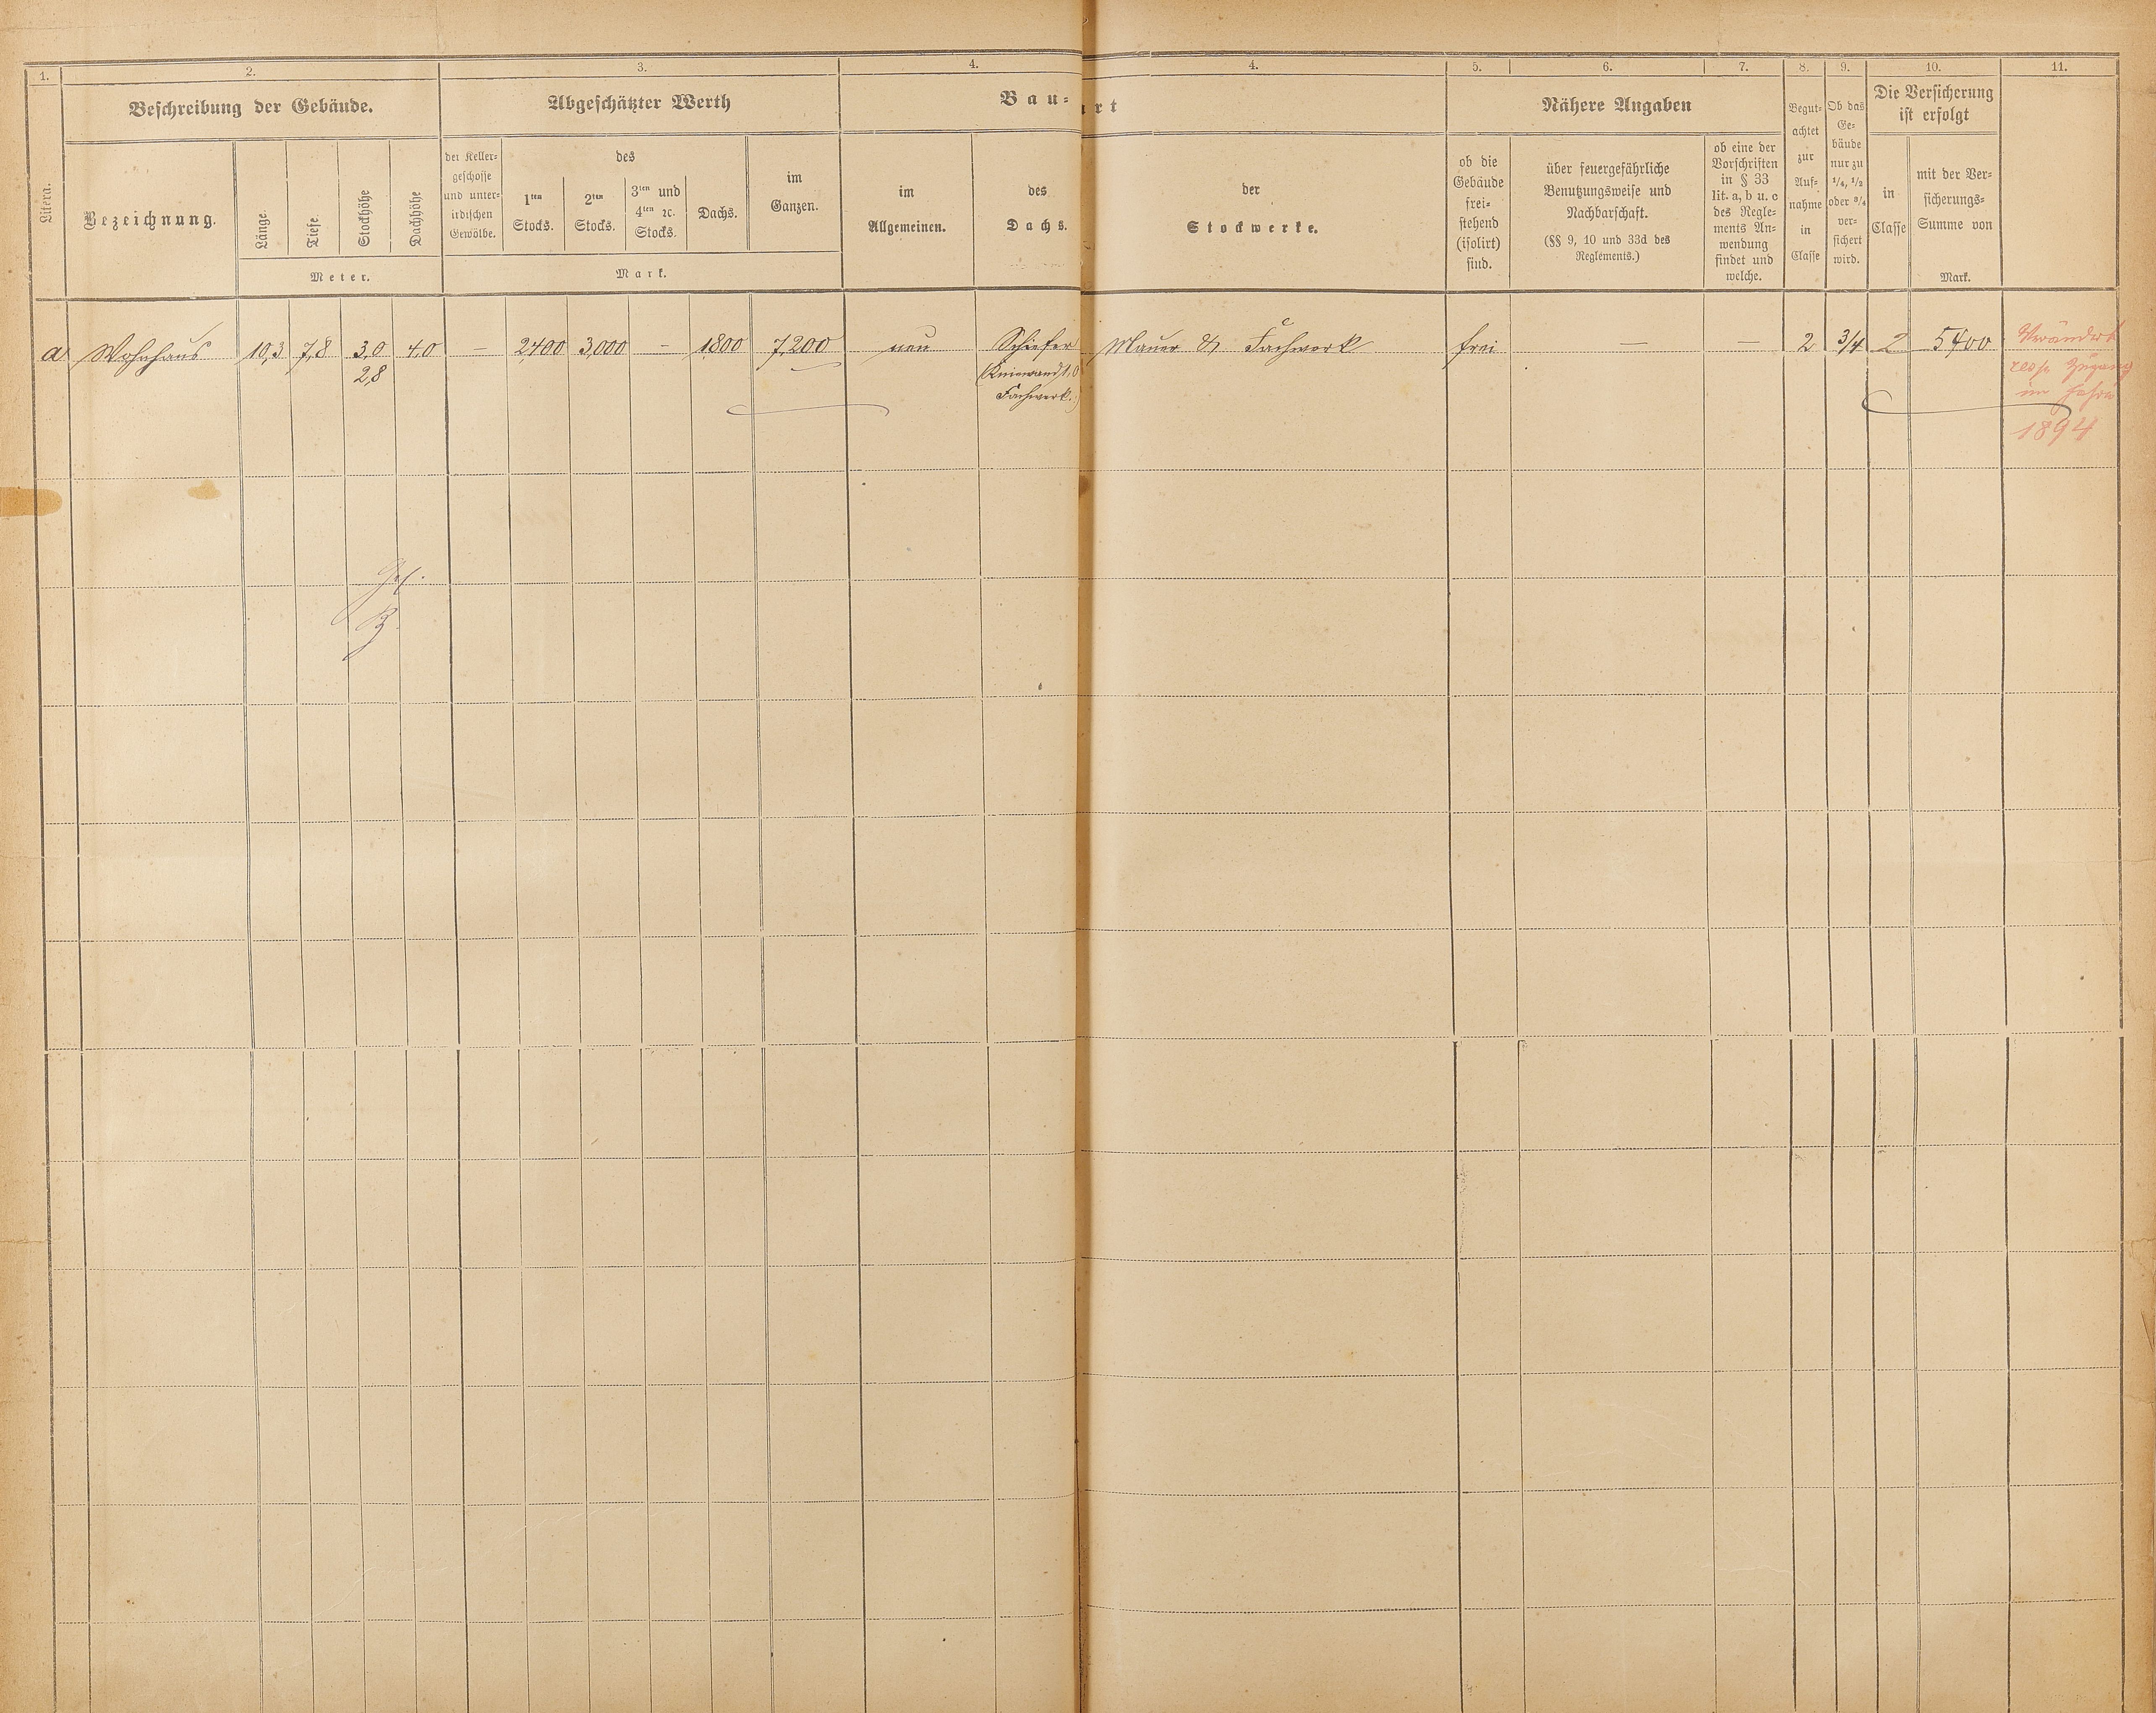 1. 2. 3. 4. 4. 5. 6. 7. 8. 9. 10. 11.
Beschreibung der Gebäude. Abgeschätzter Werth Bau- art Nähere Angaben
Litera.
Bezeichnung.
Länge.
Tiefe.
Stockhöhe
Dachhöhe
Meter.
der Keller-
geschosse
und unter-
irdischen
Gewölbe.
des
1ten
Stocks.
2ten
Stocks.
3ten und
4ten ꝛc.
Stocks.
Dachs.
im
Ganzen.
Mark.
im
Allgemeinen.
des
Dachs.
der
Stockwerke.
ob die
Gebäude
frei-
stehend
(isolirt)
sind.
über feuergefährliche
Benutzungsweise und
Nachbarschaft.
(§§ 9, 10 und 33d des
Reglements.)
ob eine der
Vorschriften
in § 33
lit. a, b u. c
des Regle-
ments An-
wendung
findet und
welche.
Begut-
achtet
zur
Auf-
nahme
in
Classe
Ob das
Ge-
bäude
nur zu
1/4, 1/2
oder 3/4
ver-
sichert
wird.
Die Versicherung
ist erfolgt
in
Classe
mit der Ver-
sicherungs-
Summe von
Mark.
a Wohnhaus 10,3 7,8 3,0 4,0 — 2400 3,000 — 1800 7,200 neu Schiefer Mauer & Fachwerk frei — — 2 3/4 2 5400 Verändert
2,8 (Kniewand 1,0 resp. Zugang
Fachwerk.) im Jahre
1894